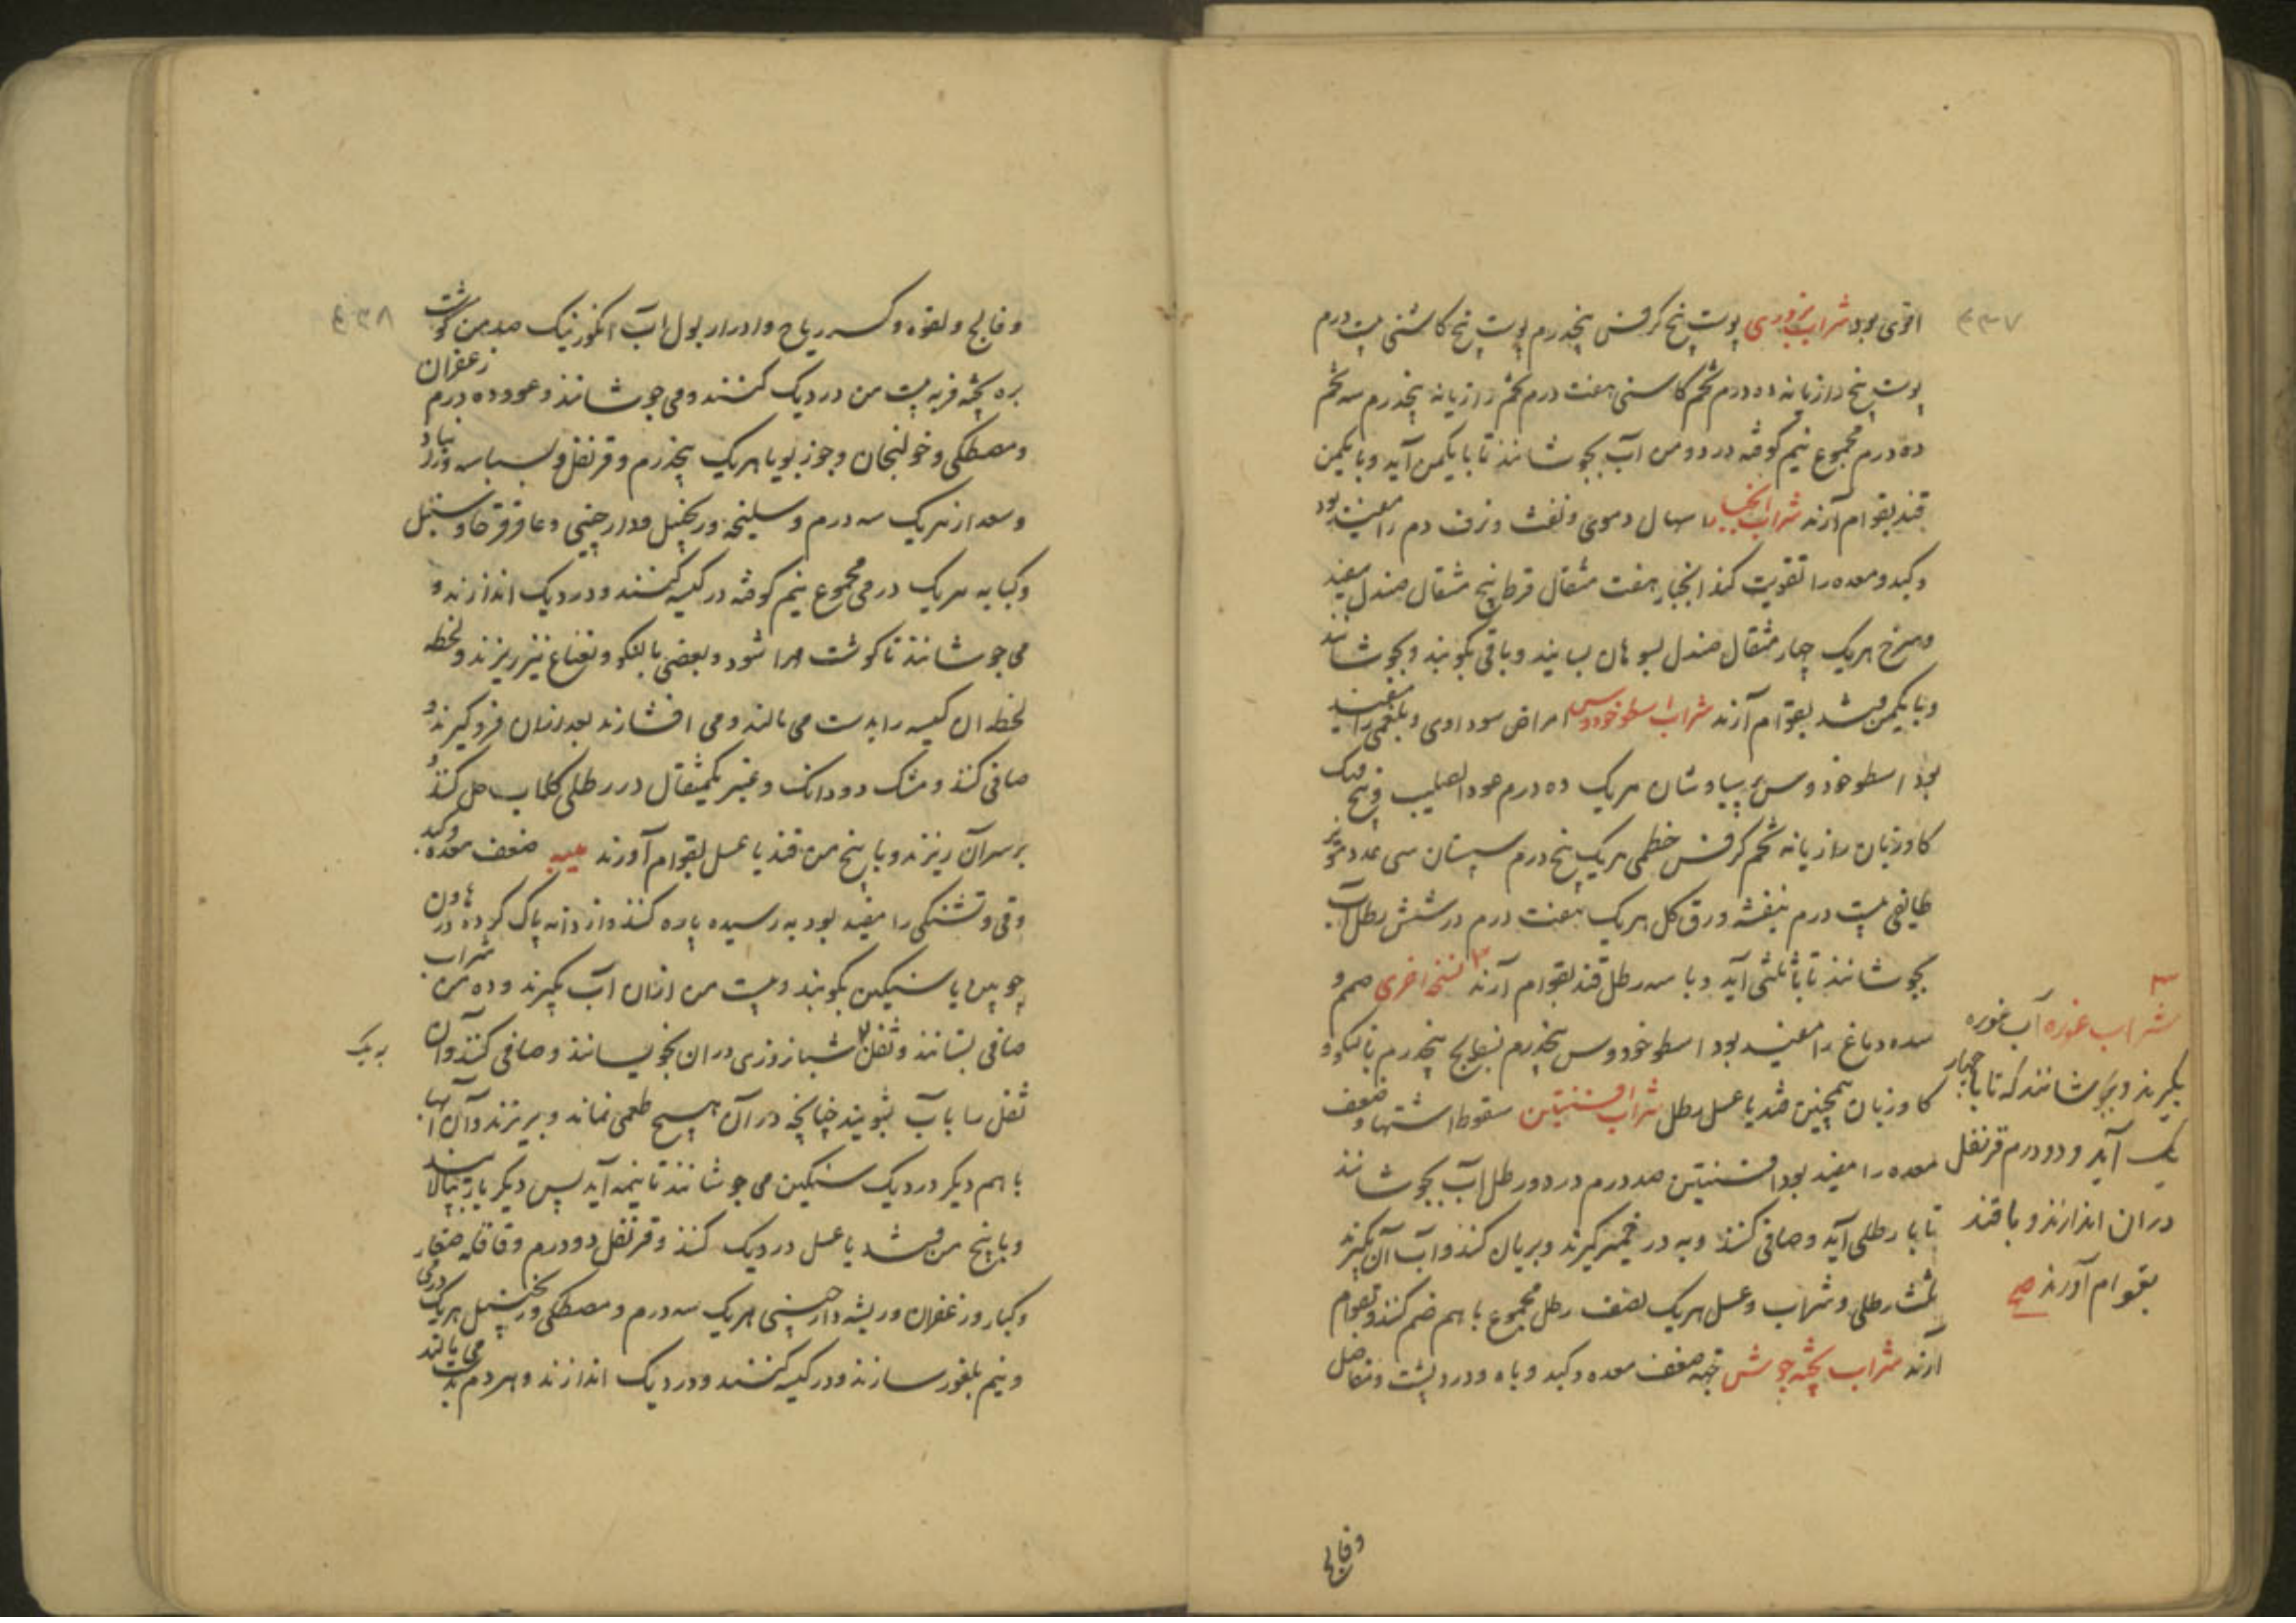 ۴۳۷
اقوی بود شراب بزوری پوست بیخ کرفس پنجدرم پوست بیخ کاسنی بیست درم
پوست بیخ رازیانه ده درم تخم کاسنی هفت درم تخم رازیانه پنجدرم سه تخم
ده درم مجموع نیم کوفته در دو من آب بجوشانند تا بایکمن آید و بایکمن
قند بقوام آرند شراب انجبار اسهال دموی و نفث و نزف دم را مفید بود
و کبد و معده را تقویت کند انجبار هفت مثقال قرط پنج مثقال صندل سفید
و سرخ هریک چهار مثقال صندل بسوهان بسایند و باقی بکوبند و بجوشانند
و بایکمن قند بقوام آرند شراب اسطوخودوس امراض سوداوی و بلغمی را مفید
بود اسطوخودوس پرسیاوشان هریک ده درم عود الصلیب
کاوزبان رازیانه تخم کرفس خطمی هریک پنج درم سپستان سی عدد مویز
طایفی بیست درم بنفشه ورق کل هریک هفت درم در شش رطل آب
بجوشانند تا باثلثی آید و با سه رطل قند بقوام آرند نسخه اخری صمم و
سده دماغ را مفید بود اسطوخودوس پنجدرم بسفایج پنجدرم بالنکو و
کاوزبان همچنین قند یا عسل رطل شراب افسنتین سقوط اشتها و ضعف
معده را مفید بود افسنتین صد درم در دو رطل آب بجوشانند
تا با رطلی آید و صافی کنند و به در خمیر کیرند و بریان کنند و آب آن بکیرند
ثلث رطلی و شراب و عسل هریک نصف رطل مجموع باهم ضم کنند و بقوام
آرند شراب پخته جوش جهه ضعف معده و کبد و باه و درد پشت و مفاصل
وفالج
شراب غوره آب غوره
بکیرند و بجوشانند که تا با چهار
یک آید و دو درم قرنفل
دران اندازند و با قند
بقوام آورند صح
۴۳۸
و فالج و لقوه و کسر ریاح و ادرار بول آب انکور نیک صد من کوشت
بره پخته فربه بیست من در دیک کنند و می جوشانند و عود ده درم زعفران
و مصطکی و خولنجان و جوز بویا هریک پنجدرم و قرنفل و بسباسه و
و سعد از هریک سه درم و سلیخه و زنجبیل و دارچینی و عاقرقرحا و سنبل
و کبابه هریک درمی مجموع نیم کوفته در کیسه کنند و در دیک اندازند و
می جوشانند تا کوشت مهرا شود و بعضی بالنکو و نعناع نیز ریزند و لحظه
لحظه ان کیسه را بدست می مالند و می افشارند بعد ازان فرو کیرند و
صافی کنند و مشک دو دانک و عنبر یکمثقال در رطلی کلاب حل کنند و
برسر آن ریزند و با پنج من قند یا عسل بقوام آورند میبه ضعف معده و کبد
و قی و تشنکی را مفید بود به رسیده پاره کنند و از دانه پاک کرده در هاون
چوبین یا سنکین بکوبند و بیست من ازان آب بکیرند و ده من شراب
صافی بستانند و ثفل شبانروزی دران بخویسانند و صافی کنند و آن
ثفل را بآب بشویند چنانچه در آن هیچ طعمی نماند و بریزند و آن آبها
باهم دیکر در دیک سنکین می جوشانند تا نیمه آید پس دیکر بار بپالایند
و با پنج من قند یا عسل در دیک کنند و قرنفل دو درم و قاقله صغار
و کبار و زعفران و ریشه دارچینی هریک سه درم و مصطکی و زنجبیل هریک درمی
و نیم بلغور سازند و در کیسه کنند و در دیک اندازند و هر دم بدست می مالند
به یک